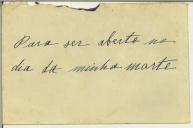 Para ser aberto no
dia da minha morte